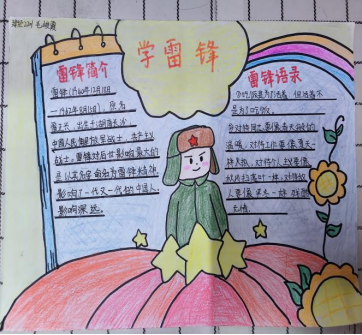 学雷锋
雷锋简介
雷锋(1940年12月18
—1962年8月15日),原名
雷正兴,出生于湖南长沙,
中国人民解放军战士,共产主义
战士。雷锋对后世影响最大的
是以其为名的雷锋精神,
影响了一代又一代的中国人,
影响深远。
雷锋语录
吃饭是为了活着,但活着不
是为了吃饭。
对待同志要像春天般的
温暖,对待工作要像夏天一
样火热,对待个人主义要像
秋风扫落叶一样,对待敌
人要像严冬一样残酷
无情。